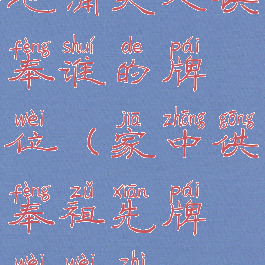 fèng shuí de pái
奉谁的牌
wèi jiā zhōng gōng
位（家中供
fèng zǔ xiān pái
奉祖先牌
wèi wèi zhì